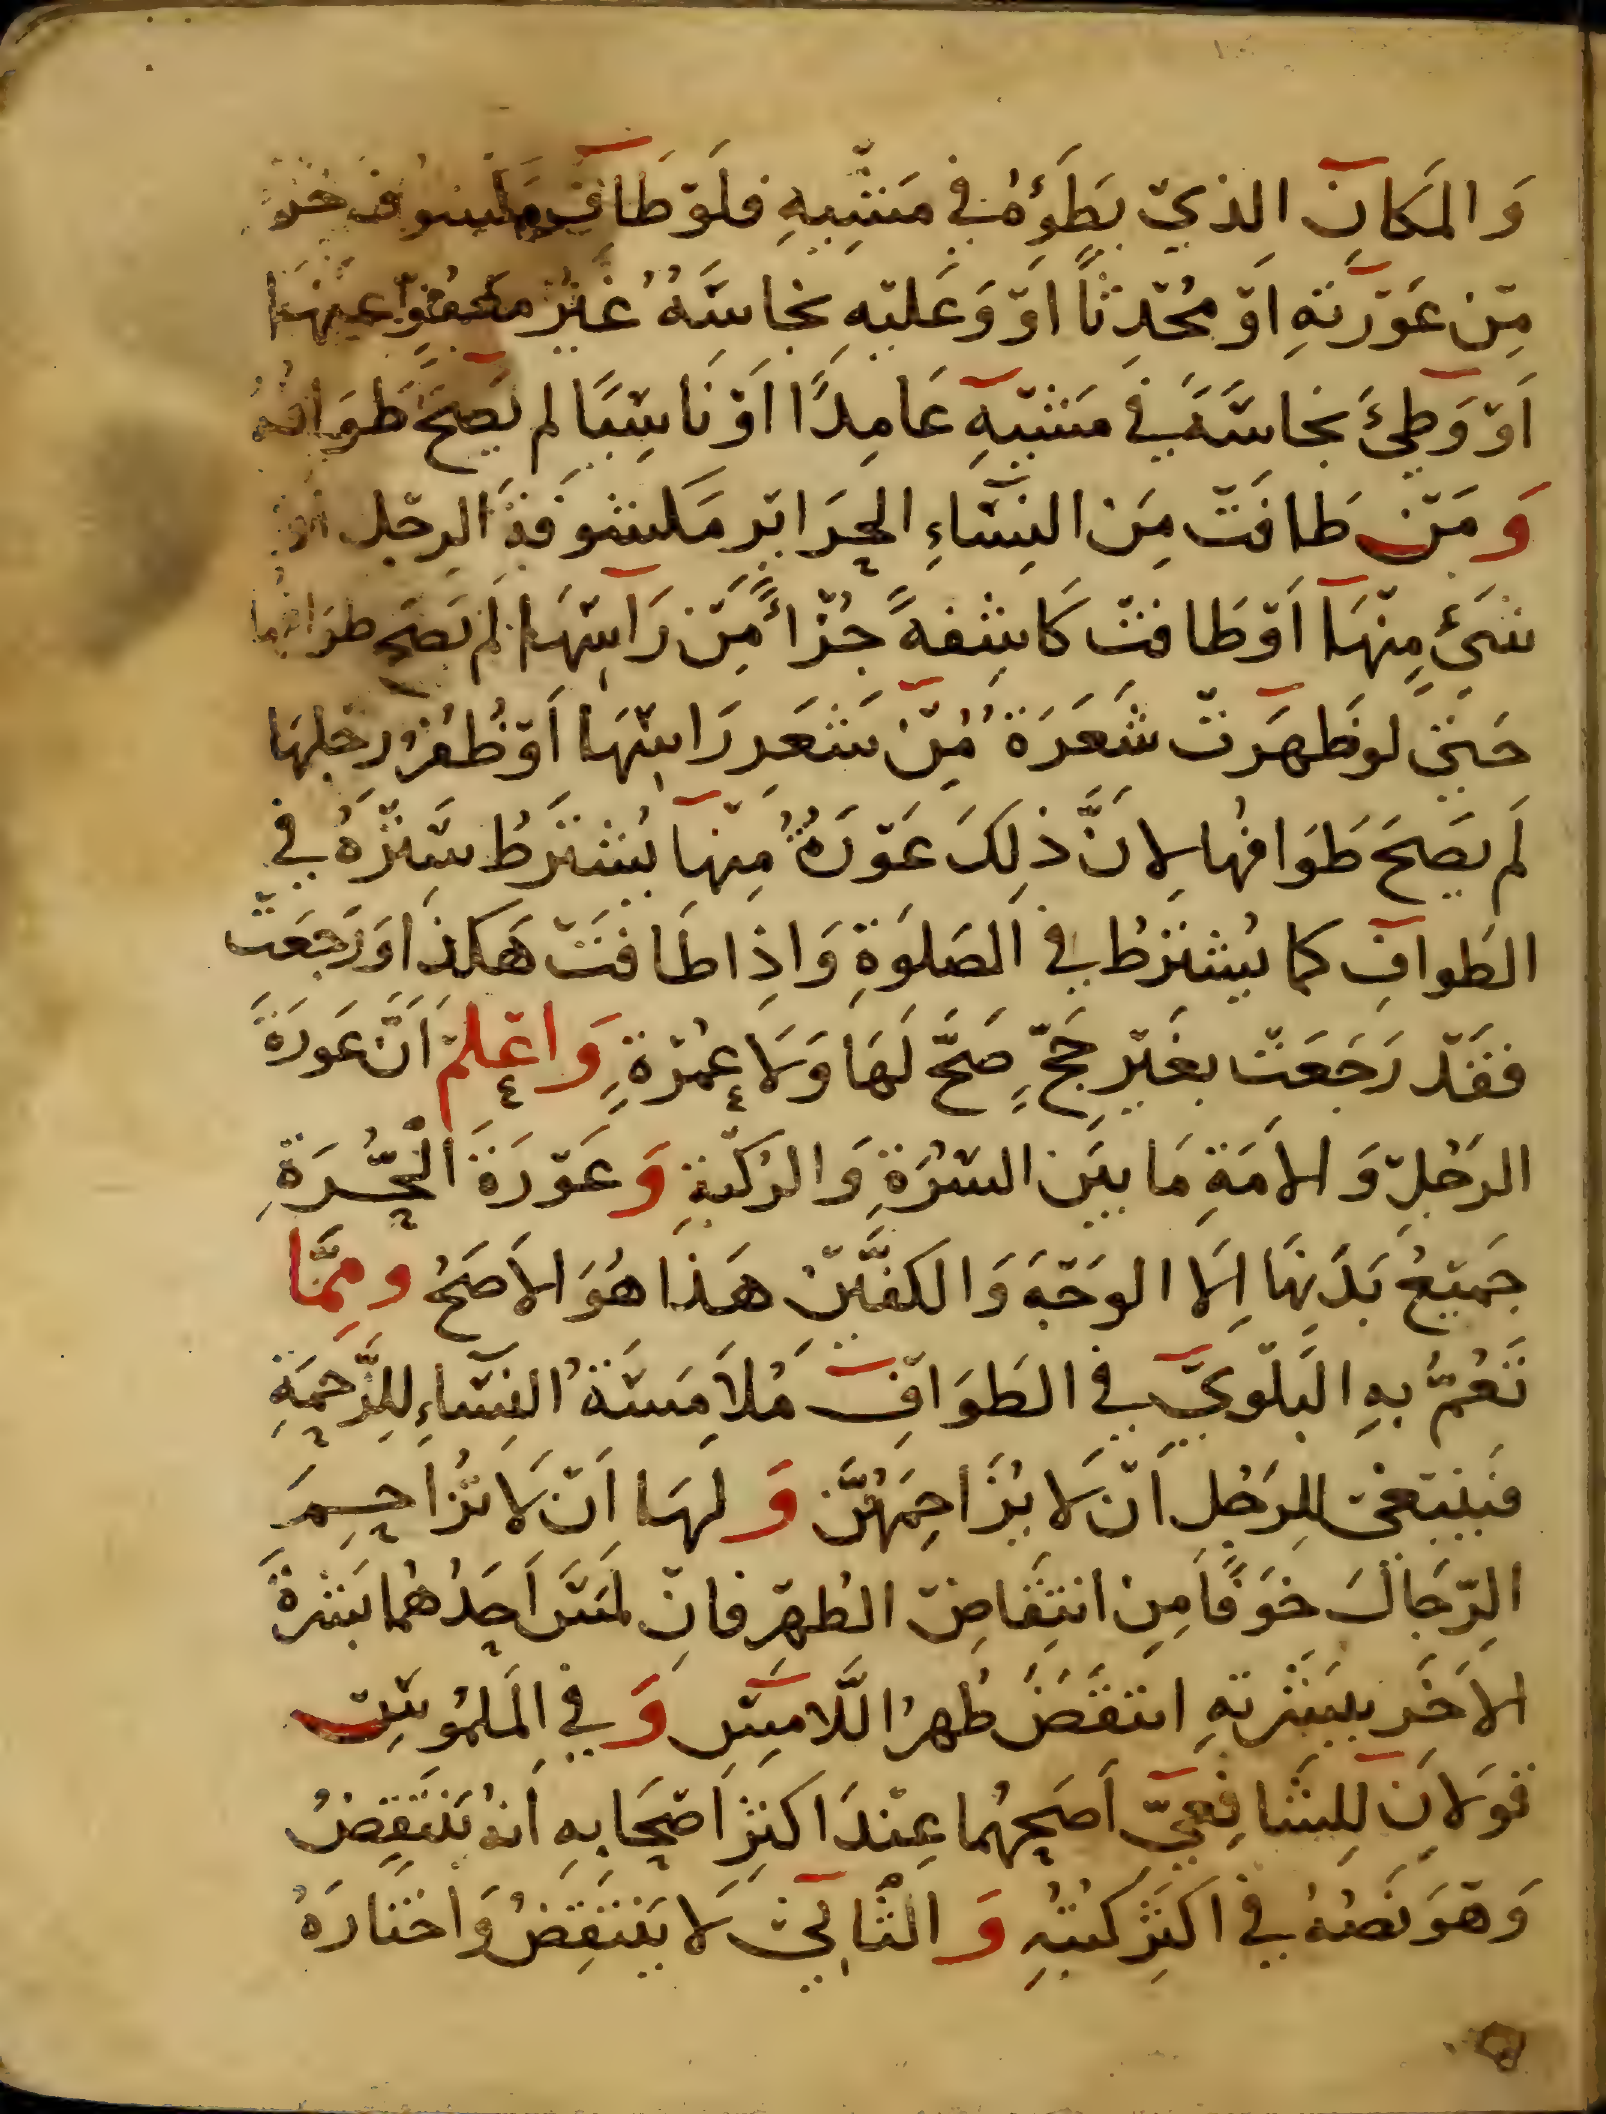 وَالمَكانِ الذِيّ يَطَوُّهُ فِي مَشّيِهِ فلَوّ طَافَ مَكشوفَ جُزءٍ
مِّن عَوّرَتهِ اوّ مُحّدِثاً اَوّ وَعَليّهِ نجاسَةٌ غَيّرُ مَعفوٍّ عَنّهَا
اَوّ وَطِئَ نجاسَةً فِي مَشّيِهِ عَامِدًا اَوّ نَاسِيًا لم يَصِحَّ طَوَافُهُ
وَمَنّ طَافَتّ مِنَ النِسّاءِ الحَرَايرِ مَكشوفةَ الرِجّلِ اوّ
شَئٍ مِنّهَا اَوّ طَافَتّ كَاشِفةً جُزّأً مِّن رَاسِهَا لَم يَصِحّ طوَافُها
حَتى لو ظَهَرَتّ شَعَرَةٌ مِّنّ شَعَرِ رَاسِهَا اَوّ ظُفُرُ رجّلِهَا
لَم يَصِحَ طَوَافُها لِانَّ ذٰلِكَ عَوّرَةٌ مِنّهَا يُشتَرَطُ سَتّرُهُ فِي
الطَوافِ كما يُشتَرَطُ فِي الصَلَوةِ وَاِذا طَافَتّ هَكذا وَرَجَعَتّ
فقَدّ رَجَعَتّ بغَيّرِ حَجٍّ صَحَّ لَهَا وَلَا عُمّرَةٍ وَاعّلمّ اَنَّ عَورَةَ
الرَجُلِ وَالامَةِ مَا بيَن السّرَةِ وَالرُكّبةِ وَعَوّرَةَ الْحُرَّةِ
جَمِيّعُ بَدَنِهَا اِلَا الوَجّهَ وَالكَفَّيّنِ هَذا هُوَ الاَصَحُ ومِمَّا
تَعُمُّ بهِ البَلّوَيّ فِي الطَوَافِ مُلاَمَسَةُ النِسّاءِ لِلزَّحمَةِ
فيَنبَغى لِلرَجُلِ اَنّ لَا يُزَاحِمَهُنَّ وَلهَا اَنّ لَا تُزَاحِمَ
الرِّجَالَ خَوّفًا مِن انتِقَاضِ الطُهّرِ فانّ لمَسَ اَحَدُهُما بَشرَةَ
الاَخَرِ ببَشَرتهِ انتقَضَ طُهرُ اللَّامِسِ وَفِي المَلمُوسِ
قوّلَانِ لِلشَافِعِيّ اَصَحهُما عِنّدَ اكثرِ اصّحَابهِ اَنهُ يَنتَقِضُ
وَهّوَ نَصُهُ فِي اكثَرِ كُتُبهِ وَالثَّانِيّ لَا يَنتَقِضُ وَاختارَهُ